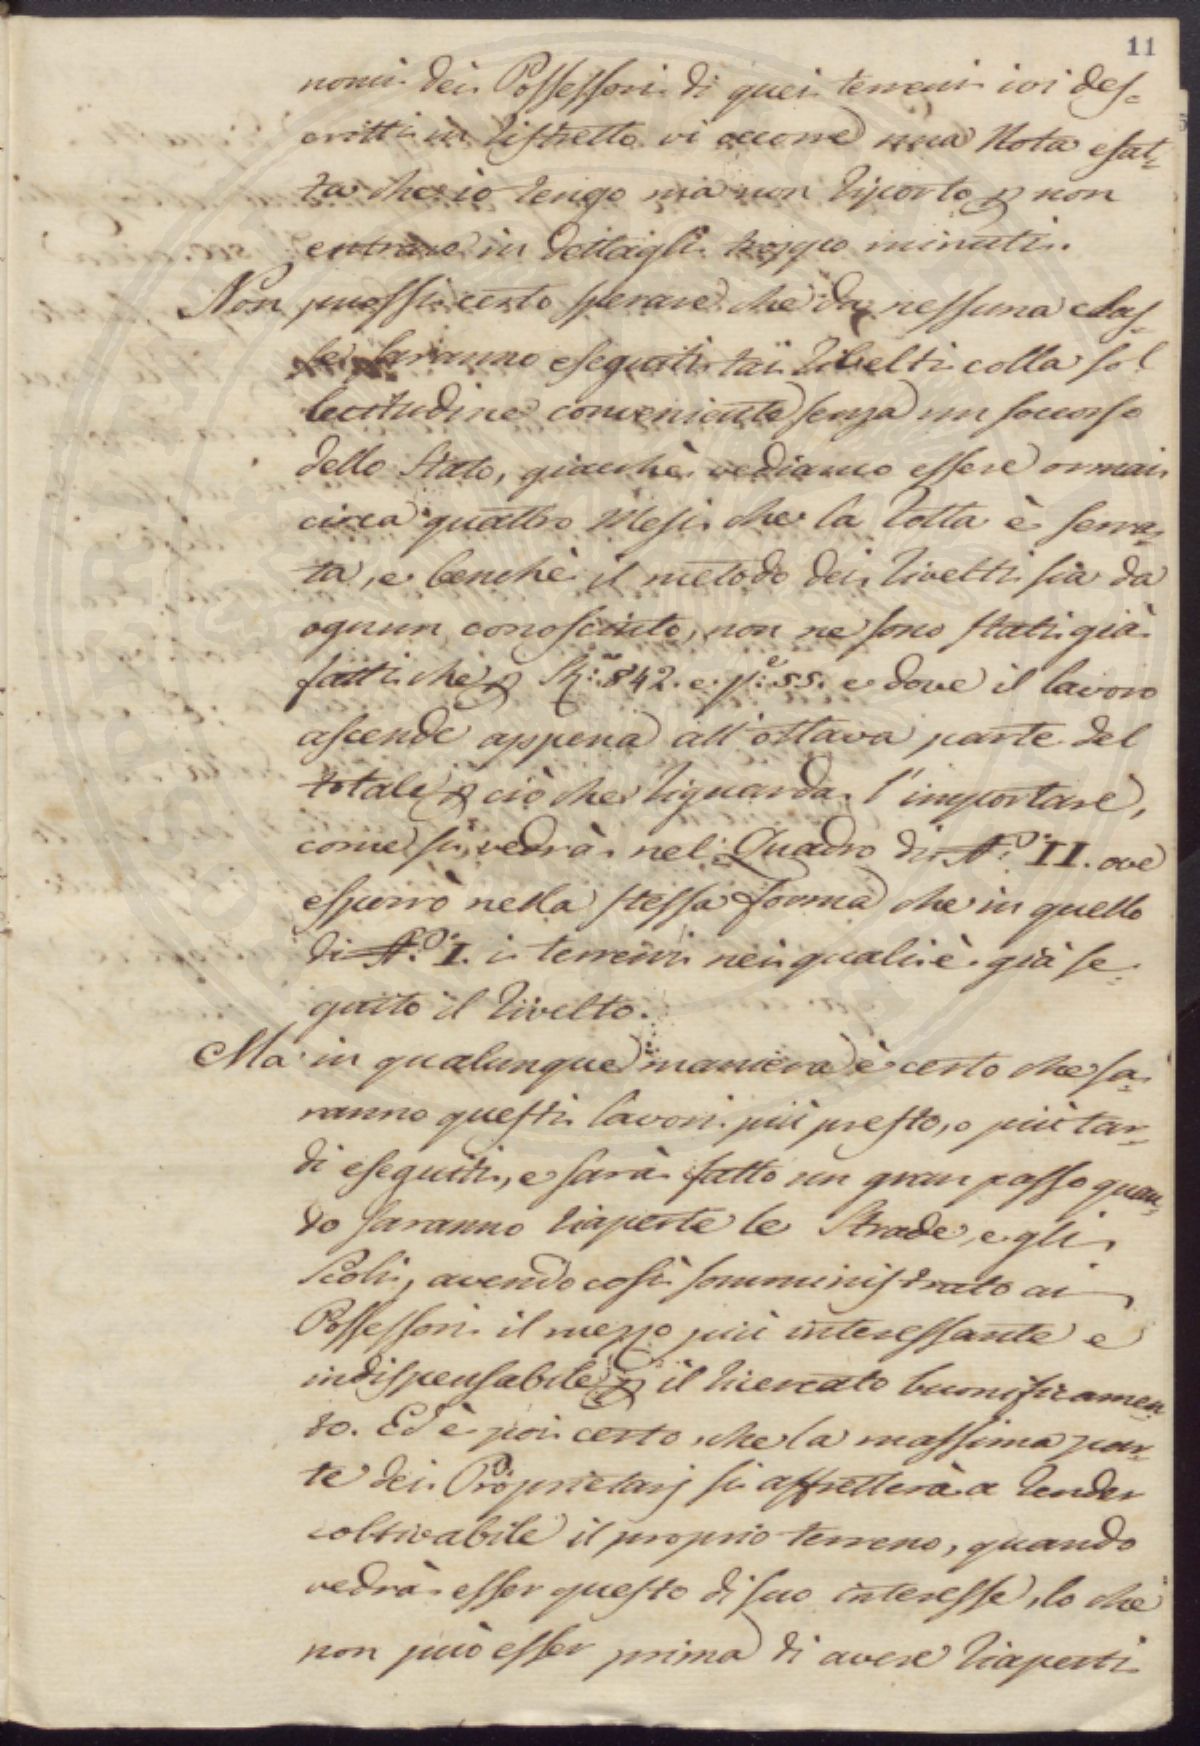 11
nomi dei Possessori di quei terreni ivi des=
critti in ristretto vi occorre una Nota esat=
ta che io tengo ma non riporto p non
entrare in dettagli troppo minuti.
Non puossi certo sperare che da nessuna clas=
se saranno eseguiti tai rivelti colla sol
lecitudine conveniente senza un soccorso
dello Stato, giacchè vediamo essere ormai
circa quattro Mesi che la rotta è serra=
ta, e benchè il metodo dei rivelti sia da
ognun conosciuto, non ne sono stati già
fatti che p 842. e p.e 55. e dove il lavoro
ascende appena all'ottava parte del
totale p ciò che riguarda l'importare,
come si vedrà nel Quadro di N.o II. ove
esporrò nella stessa forma che in quello
di N.o I. i terreni nei quali è già se=
guito il rivelto.
Ma in qualunque maniera è certo che sa=
ranno questi lavori più presto, o più tar=
di eseguiti, e sarà fatto un gran passo quan=
do saranno riaperte le Strade, e gli
Scoli, avendo così somministrato ai
Possessori il mezzo più interessante e
indispensabile p il ricercato buonificamen=
to. Ed è poi certo che la massima par=
te dei Proprietarj si affretterà a render
coltivabile il proprio terreno, quando
vedrà esser questo di suo interesse, lo che
non può esser prima di avere riaperti